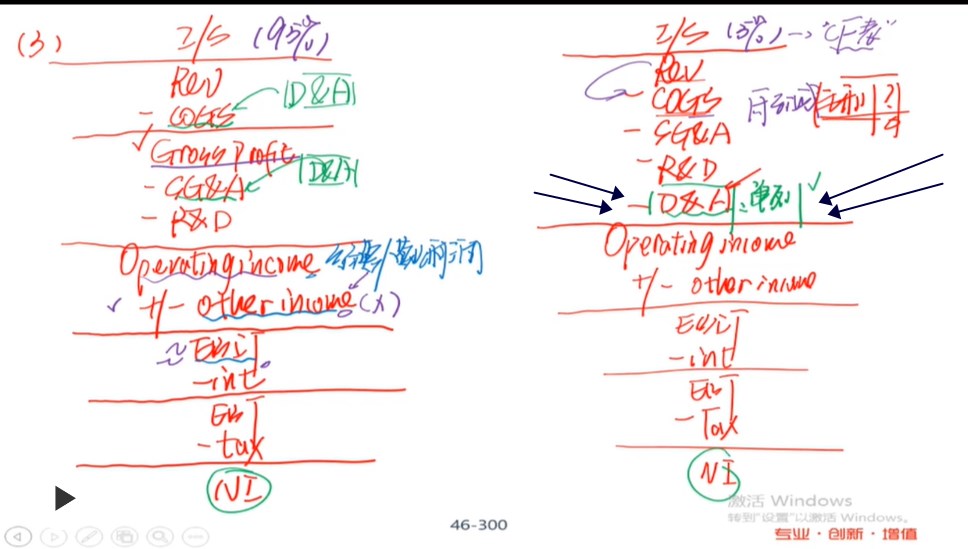 (3) I/S (95%)
Rev
- COGS |D&A|
✓ Gross Profit
- SG&A |D&A|
- R&D
Operating income
✓ +/- other income (x)
≈ EBIT
- int
EBT
- tax
NI
I/S (5%) → "CF表"
Rev
- COGS
- SG&A
- R&D
- |D&A| : 单列 | ✓
Operating income
+/- other income
EBIT
- int
EBT
- Tax
NI
46-300
激活 Windows
转到"设置"以激活 Windows。
专业·创新·增值